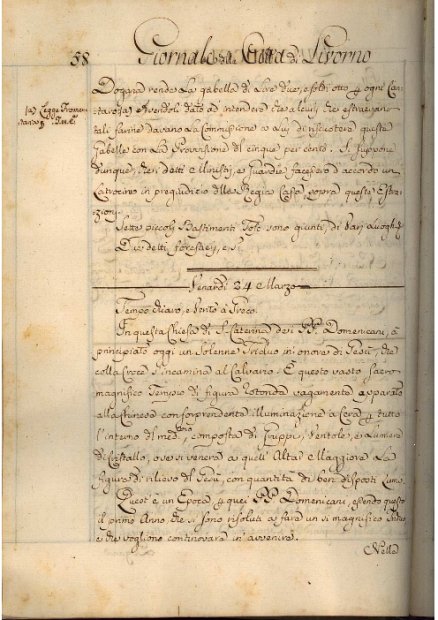 58 Giornale della Città di Livorno
Dogana rende La gabella di Lire due, e soldi otto p ogni Can-
taro (a) Avendoli dato ad intendere che alcuni che estraevano
(a) Legge Frumen-
taria
tali farine davano La Commissione a Lui di riscotere queste
Gabelle con La Provvisione di cinque per cento. Si suppone
dunque, che i detti e Ministri, e Guardie facessero d'accordo un
Latrocinio in pregiudizio della Regia Cassa, sopra queste Estra-
zioni
Sette piccoli Bastimenti Tosc. sono giunti, di Varj Luoghi
Due detti forestieri, e Si
Venardì 24 Marzo
Tempo chiaro, e Vento a Greco.
In questa Chiesa di S. Caterina dei PP. Domenicani, à
principiato oggi un Solenne Triduo in onore di Gesù, che
colla Croce s'incamina al Calvario. È questo vasto Sacro
magnifico Tempio di figura Rotonda vagamente apparato
alla Chinese con sorprendente illuminazione a Cera p tutto
l'interno del med.mo, composta di Gruppi, Ventole, e Lumiere
di Cristallo, ove si venera a quell' Altar Maggiore La
figura di rilievo del Gesù, con quantità di ben disposti Lumi.
Quest' è un Epoca p quei PP. Domenicani, essendo questo
il primo Anno che si sono risoluti a fare un sì magnifico
e che vogliono continovare in avvenire.
Nella